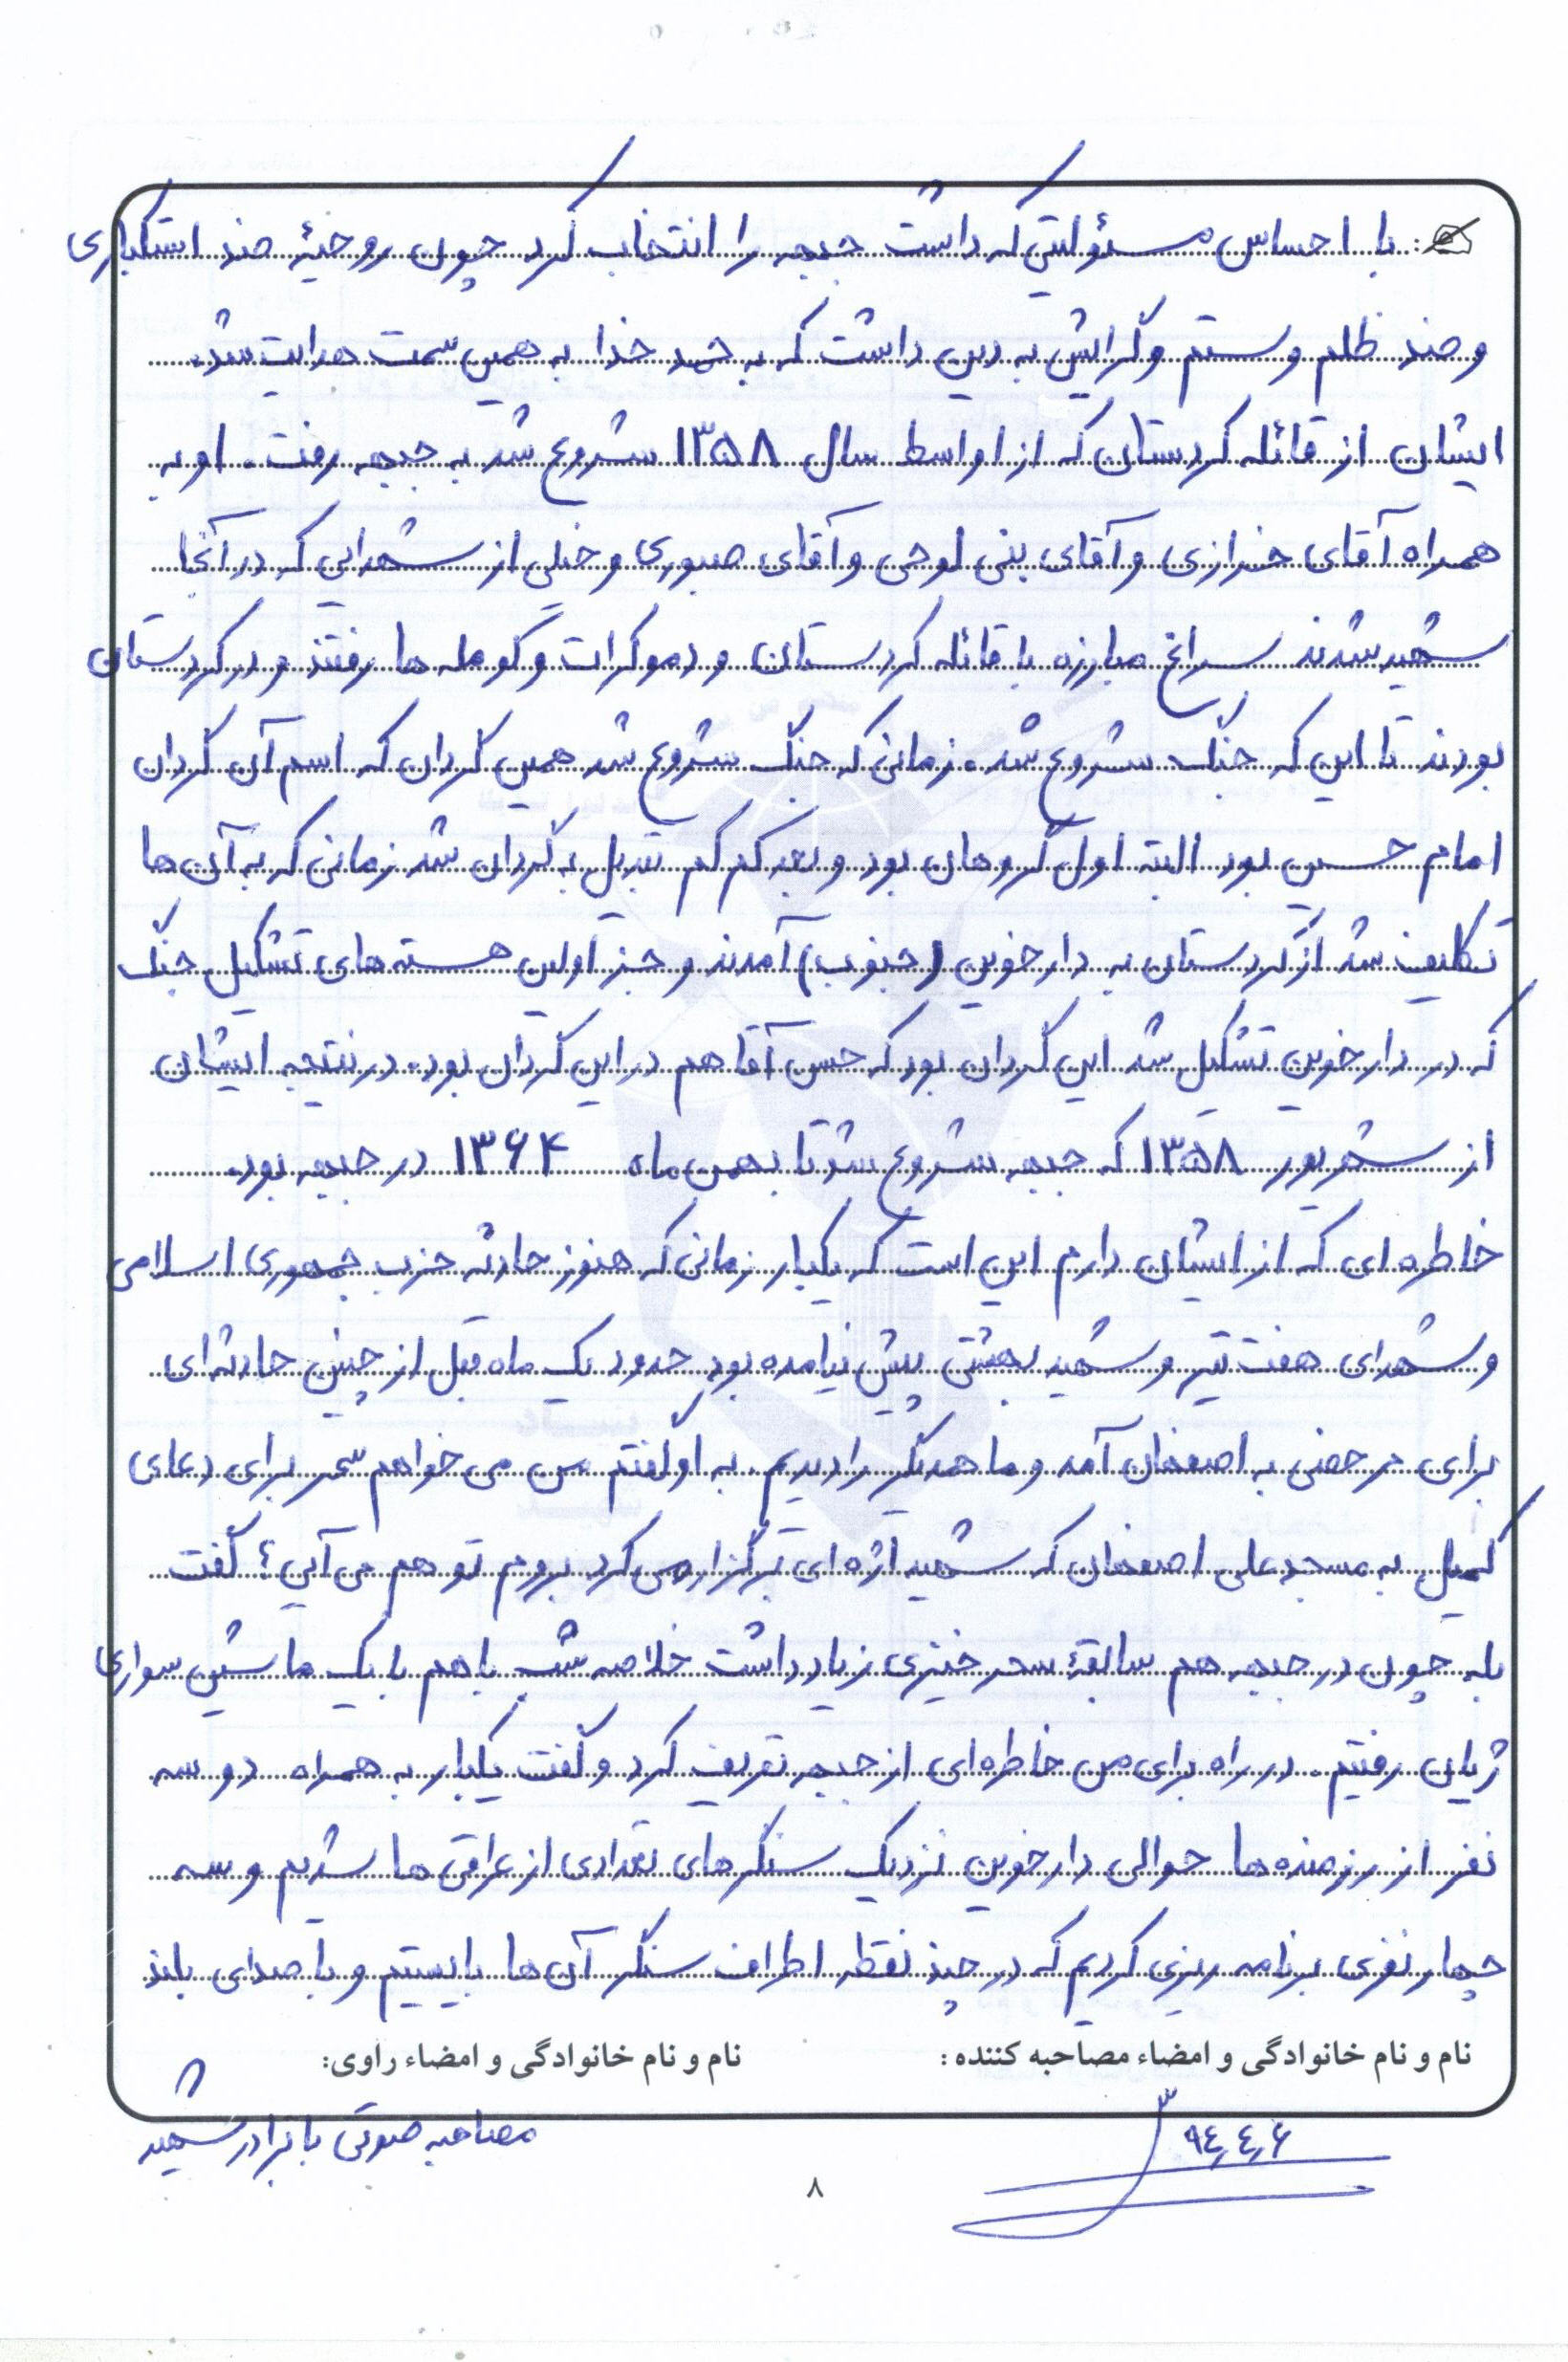 با احساس مسئولیتی که داشت جبهه را انتخاب کرد چون روحیۀ ضد استکباری
و ضد ظلم و ستم و گرایش به دین داشت که به حمد خدا به همین سمت هدایت شد.
ایشان از قائله کردستان که از اواسط سال ۱۳۵۸ شروع شد به جبهه رفت. او به
همراه آقای خرازی و آقای بنی لوحی و آقای صبوری و خیلی از شهدایی که در آنجا
شهید شدند سراغ مبارزه با قائله کردستان و دموکرات و کومله ها رفتند و در کردستان
بودند تا این که جنگ شروع شد. زمانی که جنگ شروع شد همین گردان که اسم آن گردان
امام حسین بود البته اول گروهان بود و بعد کم کم تبدیل به گردان شد زمانی که به آن ها
تکلیف شد از کردستان به دارخوین (جنوب) آمدند و جز اولین هسته های تشکیل جنگ
که در دارخوین تشکیل شد این گردان بود که حسن آقا هم در این گردان بود. در نتیجه ایشان
از شهریور ۱۳۵۸ که جبهه شروع شد تا بهمن ماه ۱۳۶۴ در جبهه بود.
خاطره ای که از ایشان دارم این است که یکبار زمانی که هنوز حادثه حزب جمهوری اسلامی
و شهدای هفت تیر و شهید بهشتی پیش نیامده بود حدود یک ماه قبل از چنین حادثه ای
برای مرخصی به اصفهان آمد و ما همدیگر را دیدیم. به او گفتم من می خواهم سحر برای دعای
کمیل به مسجد علی اصفهان که شهید اژه ای برگزار می کرد بروم تو هم می آیی؟ گفت
بله چون در جبهه هم سابقۀ سحر خیزی زیاد داشت خلاصه شب با هم با یک ماشین سواری
ژیان رفتیم. در راه برای من خاطره ای از جبهه تعریف کرد و گفت یکبار به همراه دو سه
نفر از رزمنده ها حوالی دارخوین نزدیک سنگرهای تعدادی از عراقی ها شدیم و سه
چهار نفری برنامه ریزی کردیم که در چند نقطه اطراف سنگر آن ها بایستیم و با صدای بلند
نام و نام خانوادگی و امضاء مصاحبه کننده: نام و نام خانوادگی و امضاء راوی:
۹۴،۴،۶ مصاحبه صوتی با برادر شهید
۸